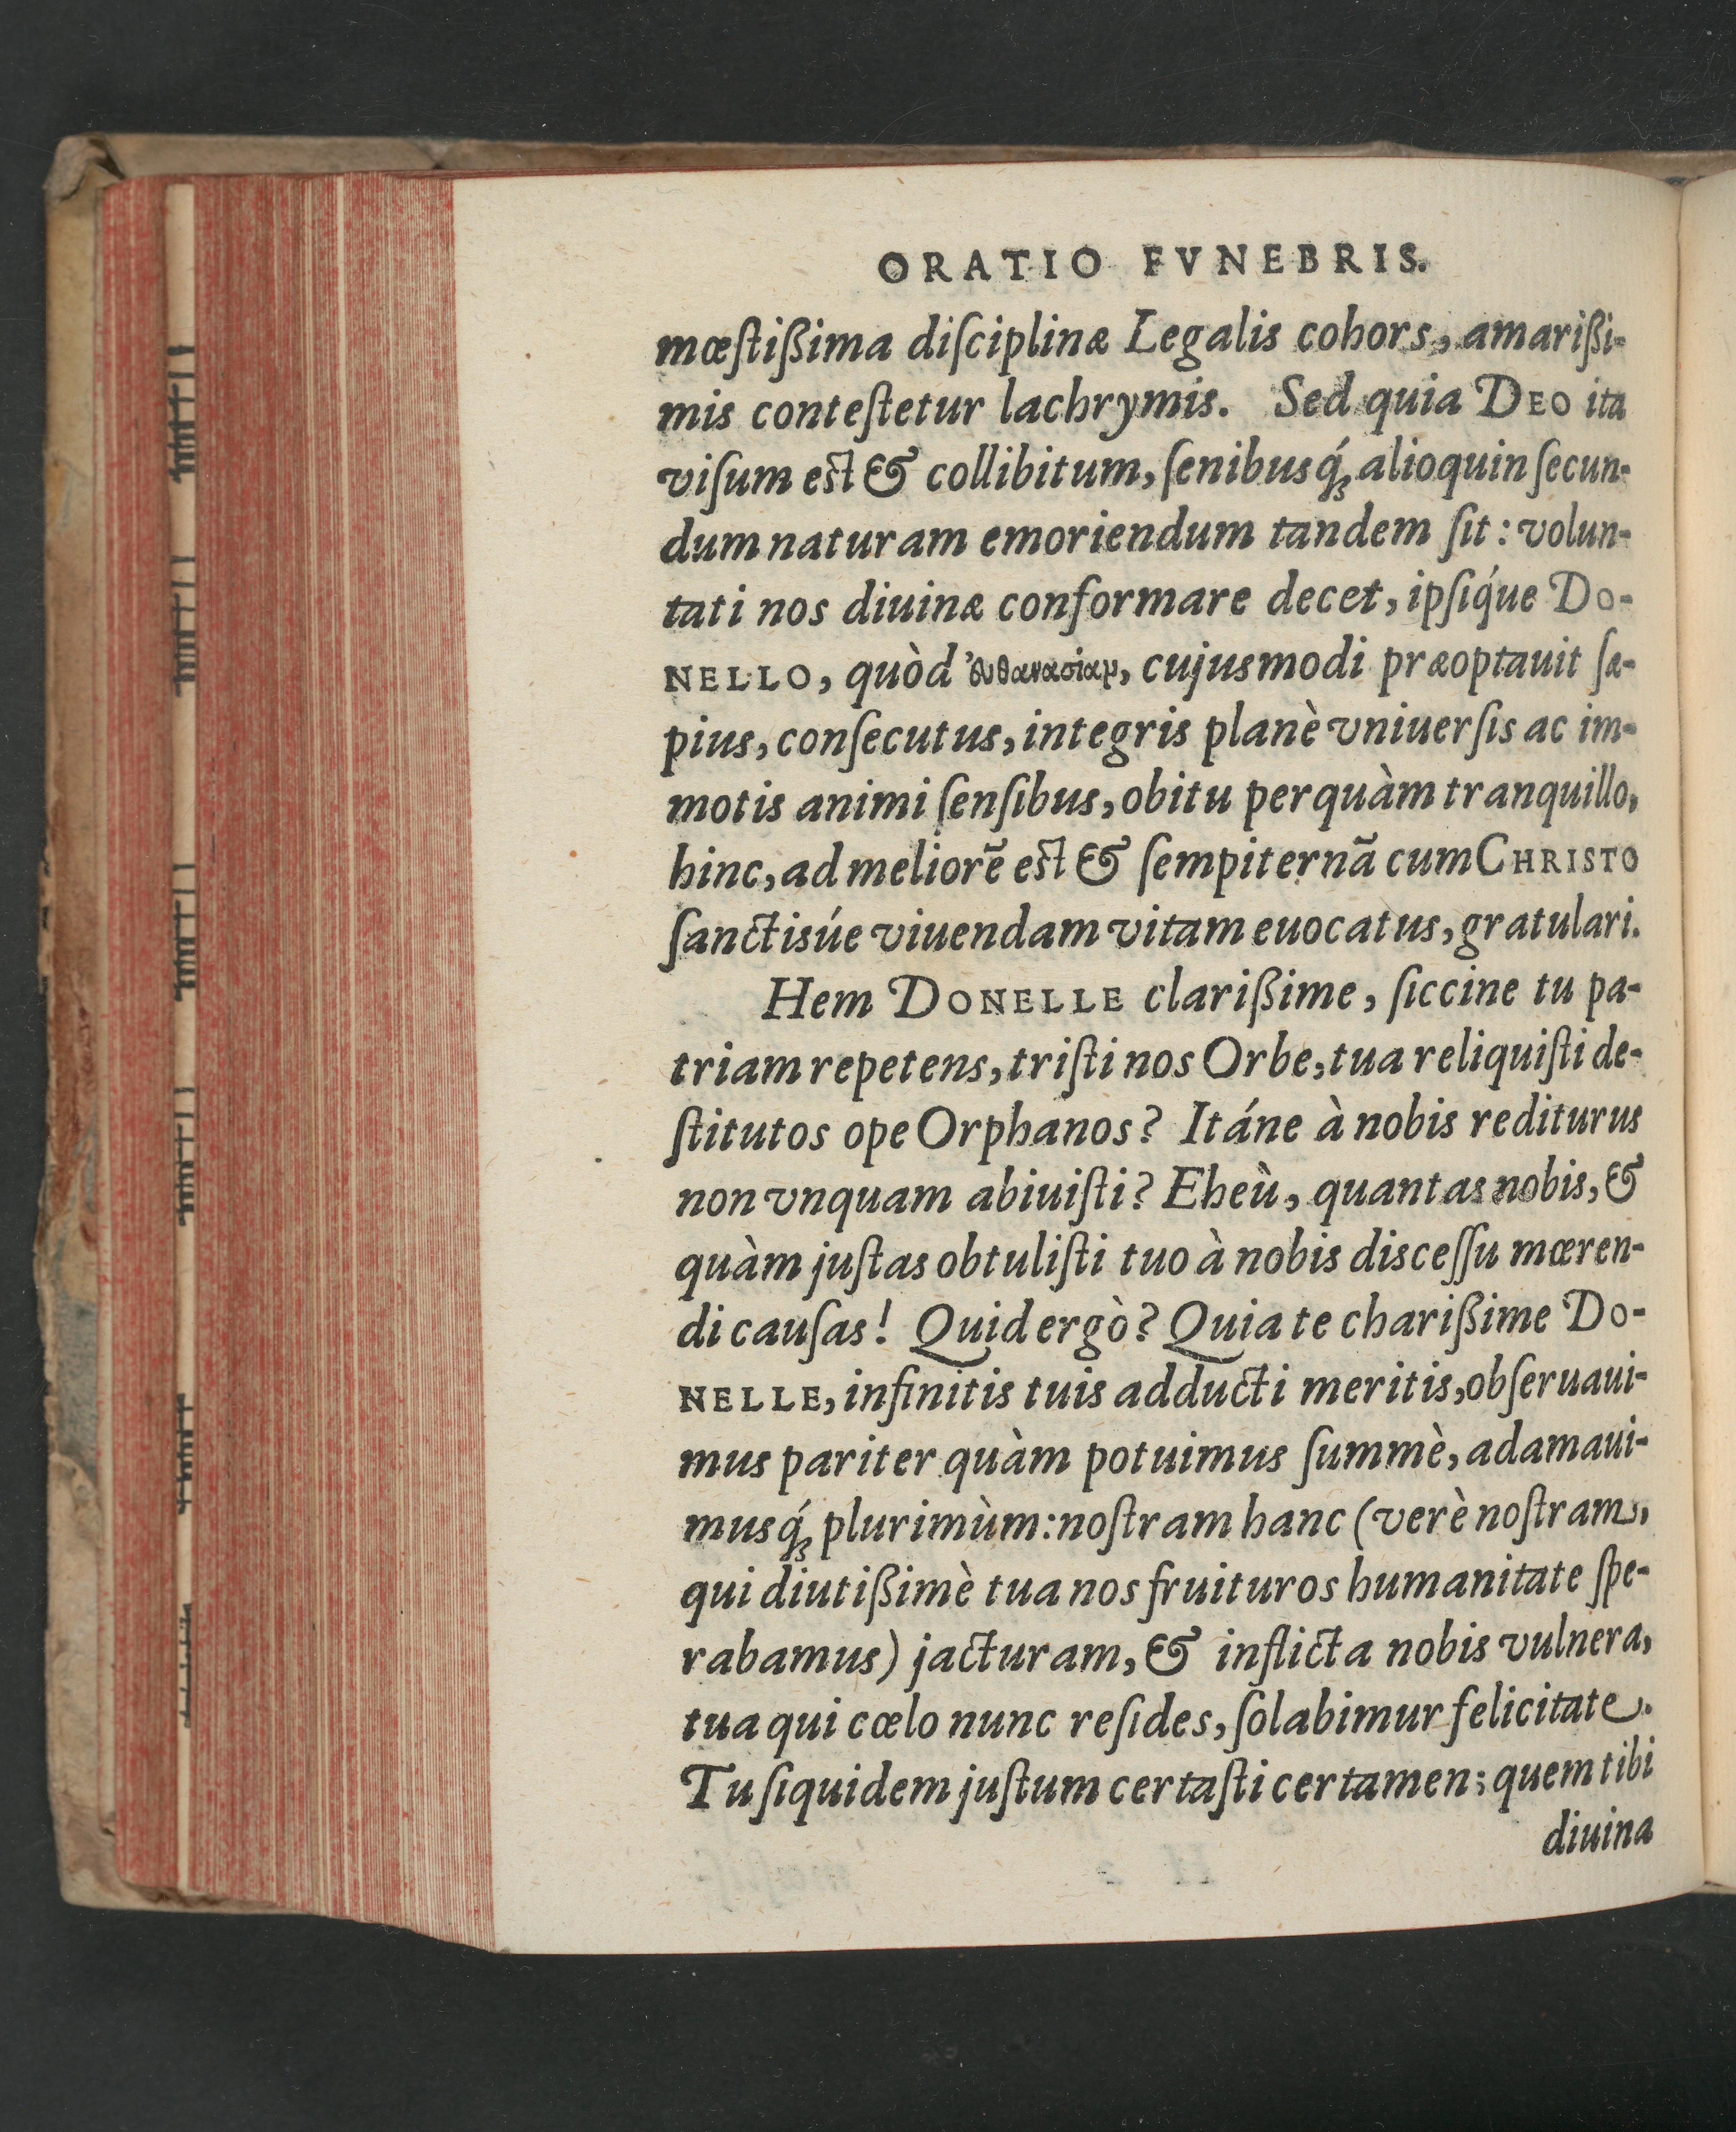 ORATIO FVNEBRIS.
mœſtißima diſciplinæ Legalis cohors, amarißi-
mis conteſtetur lachrymis. Sed quia DEO ita
viſum est & collibitum, ſenibusq́ꝫ alioquin ſecun-
dum naturam emoriendum tandem ſit: volun-
tati nos diuinæ conformare decet, ipſiq́ue DO-
NELLO, quòd ἐυθανασίαμ, cujusmodi præoptauit ſæ-
pius, conſecutus, integris planè vniuerſis ac im-
motis animi ſenſibus, obitu perquàm tranquillo,
hinc, ad meliorē est & ſempiternā cum CHRISTO
ſanctisúe viuendam vitam euocatus, gratulari.
Hem DONELLE clarißime, ſiccine tu pa-
triam repetens, triſti nos Orbe, tua reliquiſti de-
ſtitutos ope Orphanos? Itáne à nobis rediturus
non vnquam abiuiſti? Eheù, quantas nobis, &
quàm juſtas obtuliſti tuo à nobis disceſſu mœren-
di cauſas! Quid ergò? Quia te charißime DO-
NELLE, infinitis tuis adducti meritis, obſeruaui-
mus pariter quàm potuimus ſummè, adamaui-
musq́ꝫ plurimùm: noſtram hanc (verè noſtram,
qui diutißimè tua nos fruituros humanitate ſpe-
rabamus) jacturam, & inflicta nobis vulnera,
tua qui cœlo nunc reſides, ſolabimur felicitate.
Tu ſiquidem juſtum certaſti certamen; quem tibi
diuina